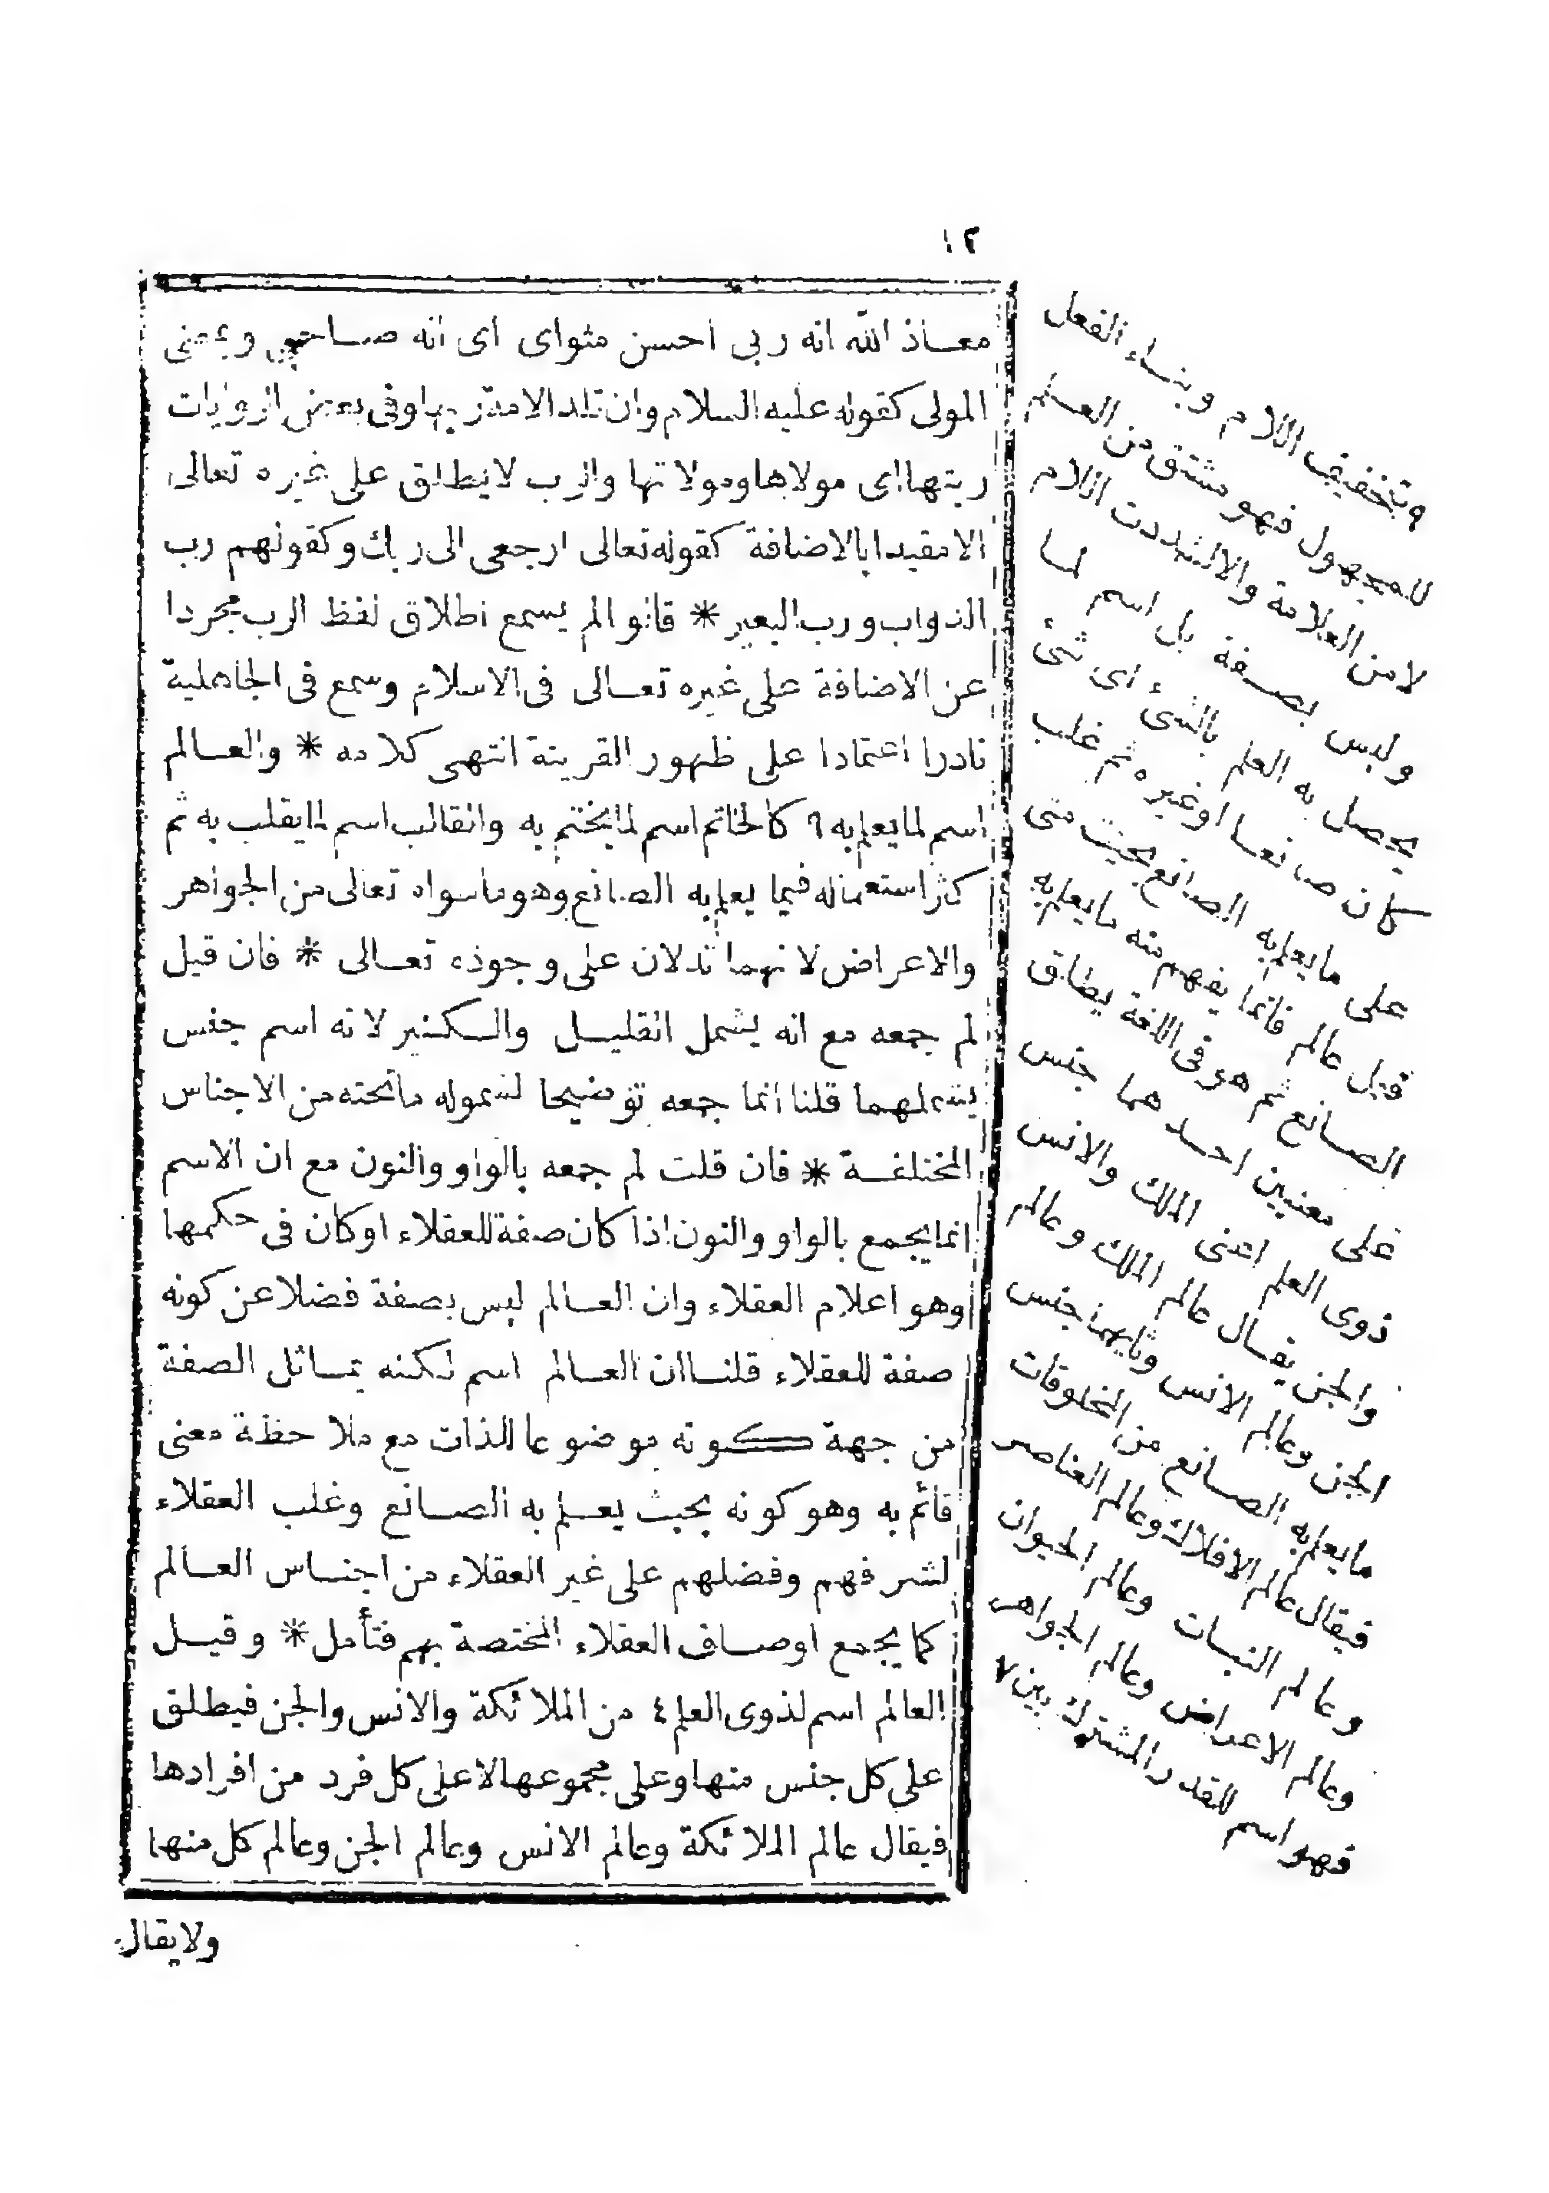 ١٢
معاذ الله انه ربى احسن مثواى اى انه صاحبى وبمعنى
المولى كقوله عليه السلام وان تلد الامة ربها وفى بعض الروايات
ربتها اى مولاها ومولاتها والرب لا يطلق على غيره تعالى
الا مقيدا بالاضافة كقوله تعالى ارجعى الى ربك وكقولهم رب
الدواب ورب البعير * قالوا لم يسمع اطلاق لفظ الرب مجردا
عن الاضافة على غيره تعالى فى الاسلام وسمع فى الجاهلية
نادرا اعتمادا على ظهور القرينة انتهى كلامه * والعالم
اسم لما يعلم به ٩ كالخاتم اسم لما يختم به والقالب اسم لما يقلب به ثم
كثر استعماله فيما يعلم به الصانع وهو ما سواه تعالى من الجواهر
والاعراض لانهما تدلان على وجوده تعالى * فان قيل
لم جمعه مع انه يشمل القليل والكثير لانه اسم جنس
يشملهما قلنا انما جمعه توضيحا لشموله ما تحته من الاجناس
المختلفة * فان قلت لم جمعه بالواو والنون مع ان الاسم
انما يجمع بالواو والنون اذا كان صفة للعقلاء او كان فى حكمها
وهو اعلام العقلاء وان العالم ليس بصفة فضلا عن كونه
صفة للعقلاء قلنا ان العالم اسم لكنه يماثل الصفة
من جهة كونه موضوعا للذات مع ملاحظة معنى
قائم به وهو كونه بحيث يعلم به الصانع وغلب العقلاء
لشرفهم وفضلهم على غير العقلاء من اجناس العالم
كما يجمع اوصاف العقلاء المختصة بهم فتأمل * وقيل
العالم اسم لذوى العلم ٤ من الملائكة والانس والجن فيطلق
على كل جنس منها وعلى مجموعها لا على كل فرد من افرادها
فيقال عالم الملائكة وعالم الانس وعالم الجن وعالم كل منها
ولا يقال
٩ بتخفيف اللام وبناء الفعل
للمجهول فهو مشتق من العلم
لا من العلامة والا لشددت اللام
وليس بصفة بل اسم لما
يحصل به العلم بالشئ اى شئ
كان صانعا او غيره ثم غلب
على ما يعلم به الصانع بحيث متى
قيل عالم فانما يفهم منه ما يعلم به
الصانع ثم هو فى اللغة يطلق
على معنيين احدهما جنس
ذوى العلم اعنى الملك والانس
والجن يقال عالم الملك وعالم
الجن وعالم الانس وثانيهما جنس
ما يعلم به الصانع من المخلوقات
فيقال عالم الافلاك وعالم العناصر
وعالم النبات وعالم الحيوان
وعالم الاعراض وعالم الجواهر
فهو اسم للقدر المشترك بين ٧